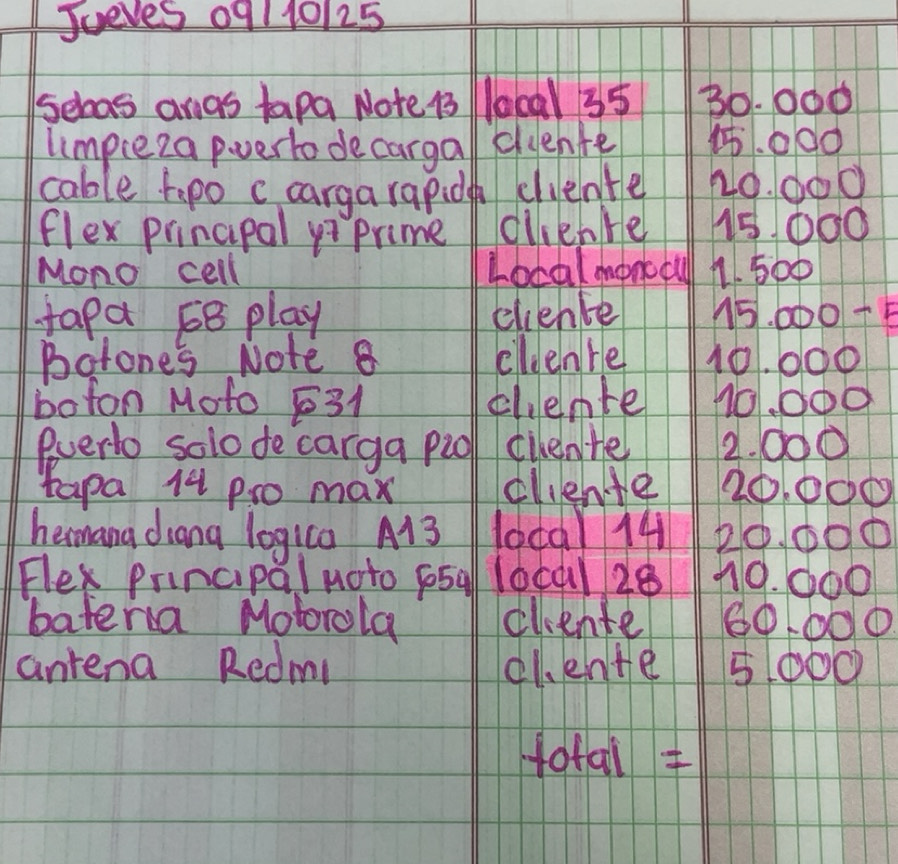 Jueves 09/10/25
Sebas arias tapa Note 13 local 35 30.000
limpieza puerto de carga cliente 15.000
cable tipo c carga rapida cliente 20.000
flex principal y7 prime cliente 15.000
Mono cell Local monocll 1.500
tapa G8 play cliente 15.000 -
Botones Note 8 cliente 10.000
boton Moto G31 cliente 10.000
Puerto solo de carga P20 cliente 2.000
tapa 14 pro max cliente 20.000
hermana diana logica A13 local 14 20.000
Flex principal Moto G54 local 28 10.000
bateria Motorola cliente 60.000
antena Redmi cliente 5.000
total =